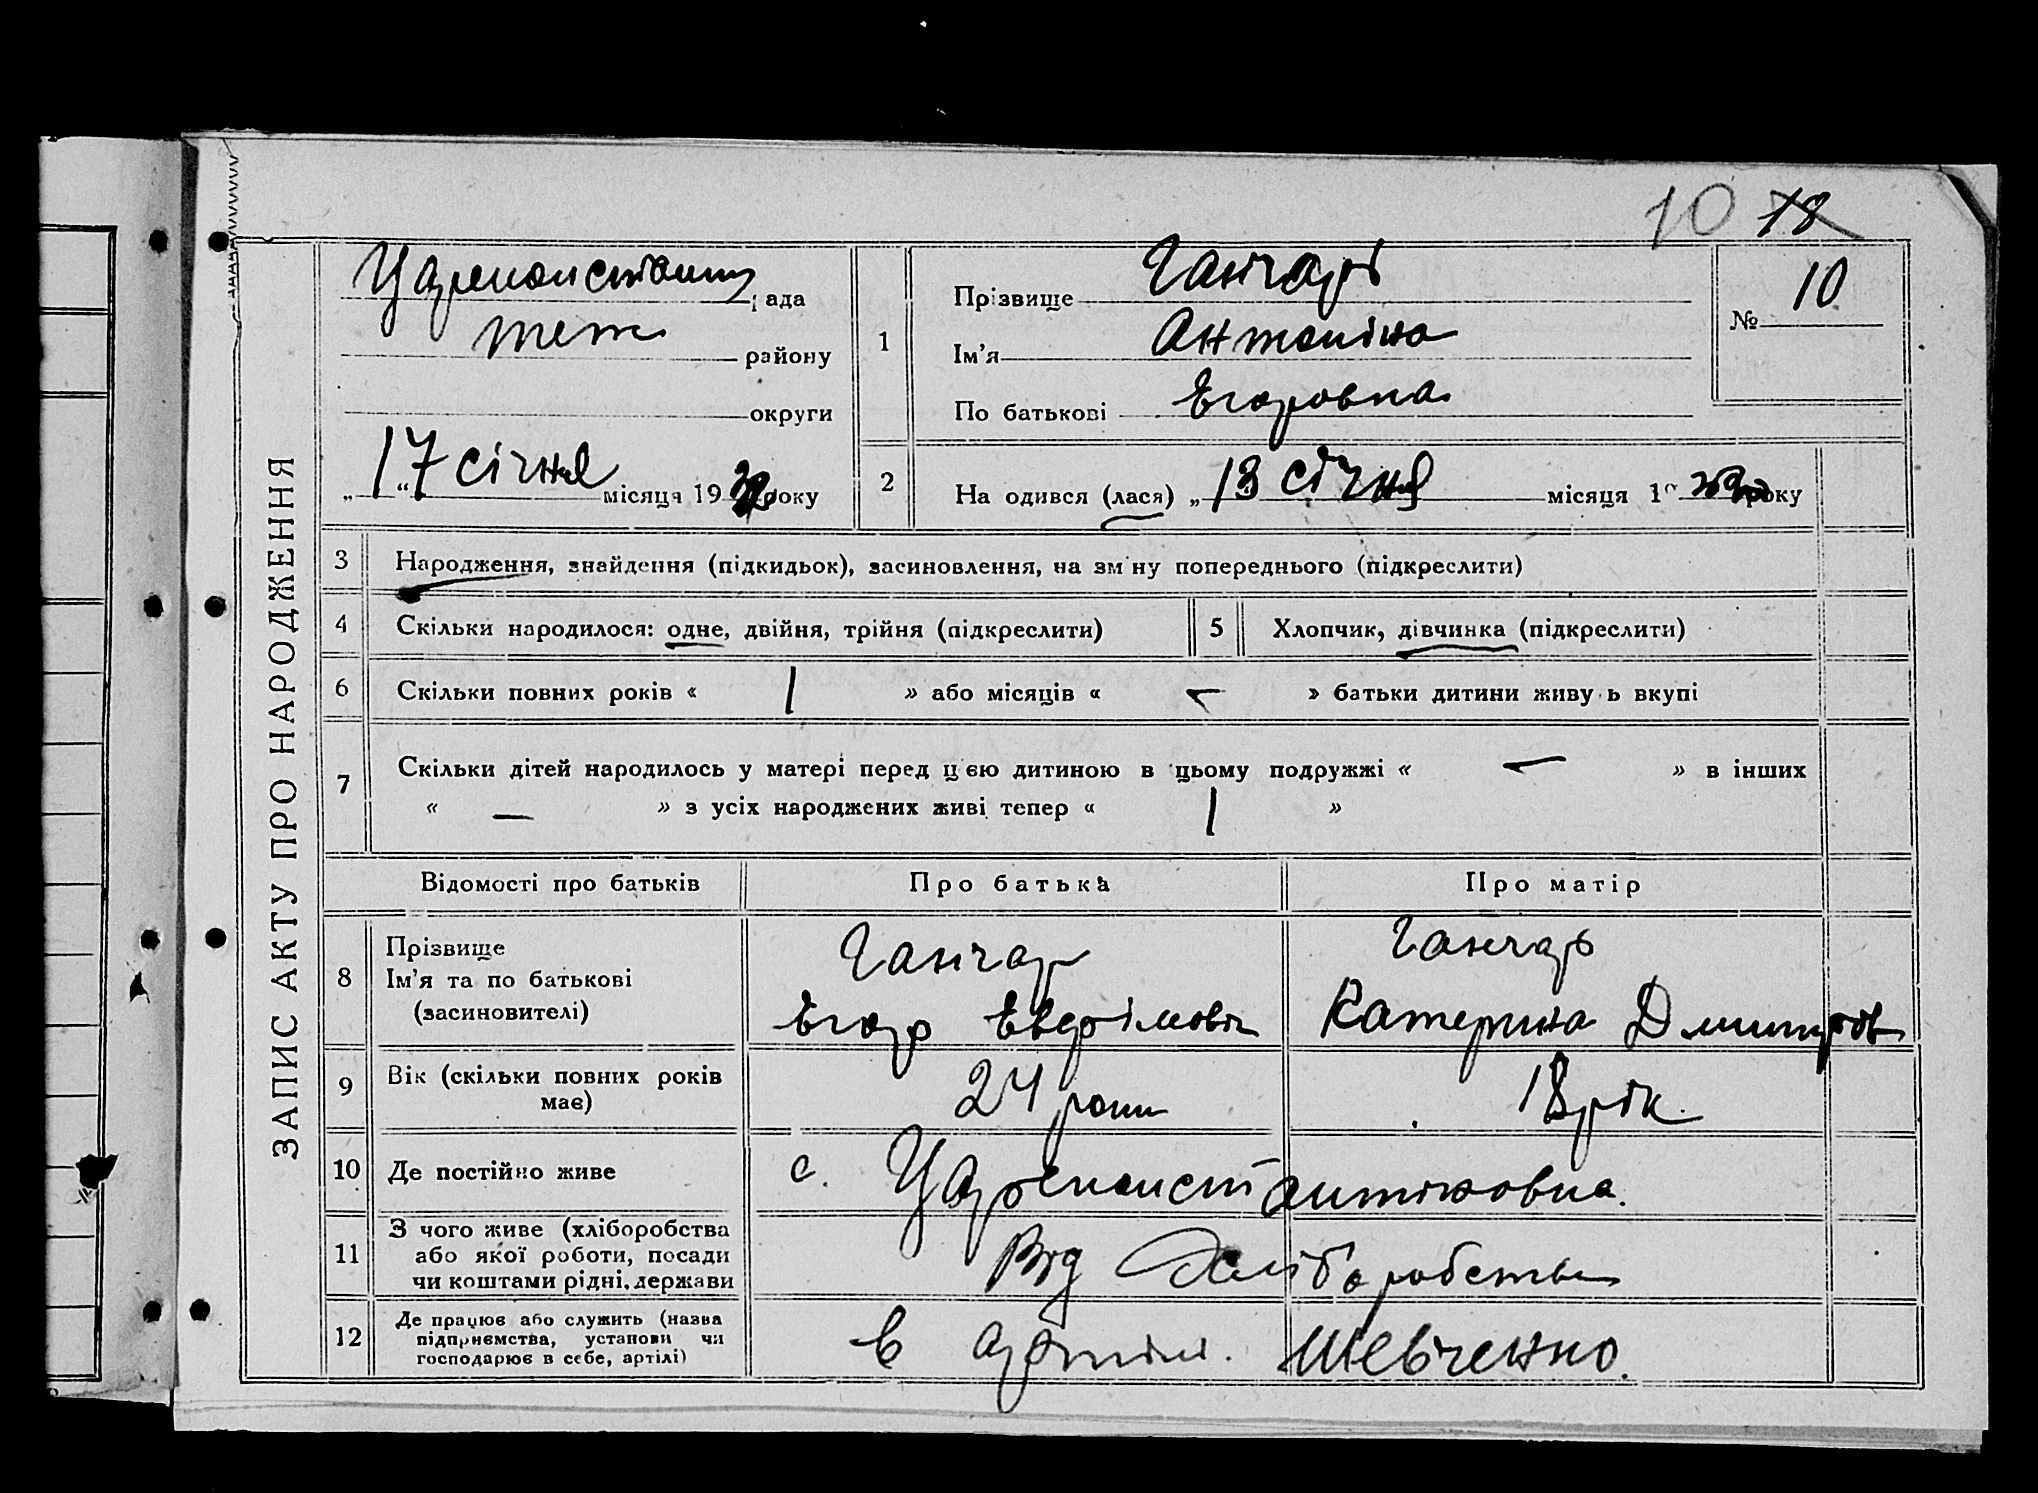 10 18
ЗАПИС АКТУ ПРО НАРОДЖЕННЯ
рада
теж району
округи
„17“ січня місяця 19 року
1
Прізвище Ганчарь
Ім'я Антоніна
По батькові Егоровна
№ 10
2 На одився (лася) „13 січня місяця 19 року
3 Народження, знайдення (підкидьок), засиновлення, на зміну попереднього (підкреслити)
4 Скільки народилося: одне, двійня, трійня (підкреслити)
5 Хлопчик, дівчинка (підкреслити)
6 Скільки повних років « 1 » або місяців « — » батьки дитини живу ь вкупі
7 Скільки дітей народилось у матері перед цією дитиною в цьому подружжі « — » в інших
« — » з усіх народжених живі тепер « 1 »
Відомості про батьків Про батька Про матір
8 Прізвище
Ім'я та по батькові
(засиновителі)
Ганчар
Егор
Ганчарь
Катерина Дмитров
9 Вік (скільки повних років має)
24 роки
18 рік.
10 Де постійно живе
с. Цареконстантиновка.
11 З чого живе (хліборобства
або якої роботи, посади
чи коштами рідні, держави
Від Хліборобства
12 Де працює або служить (назва
підприємства, установи чи
господарює в себе, артілі)
в артілі. Шевченко.